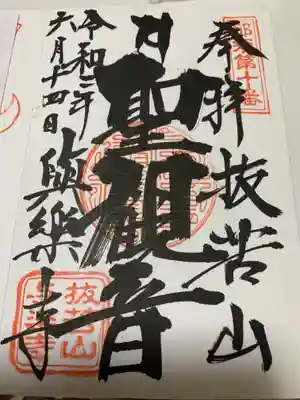 第十番
奉拝 抜苦山
聖観音
令和二年
六月十四日
與樂寺
抜苦山